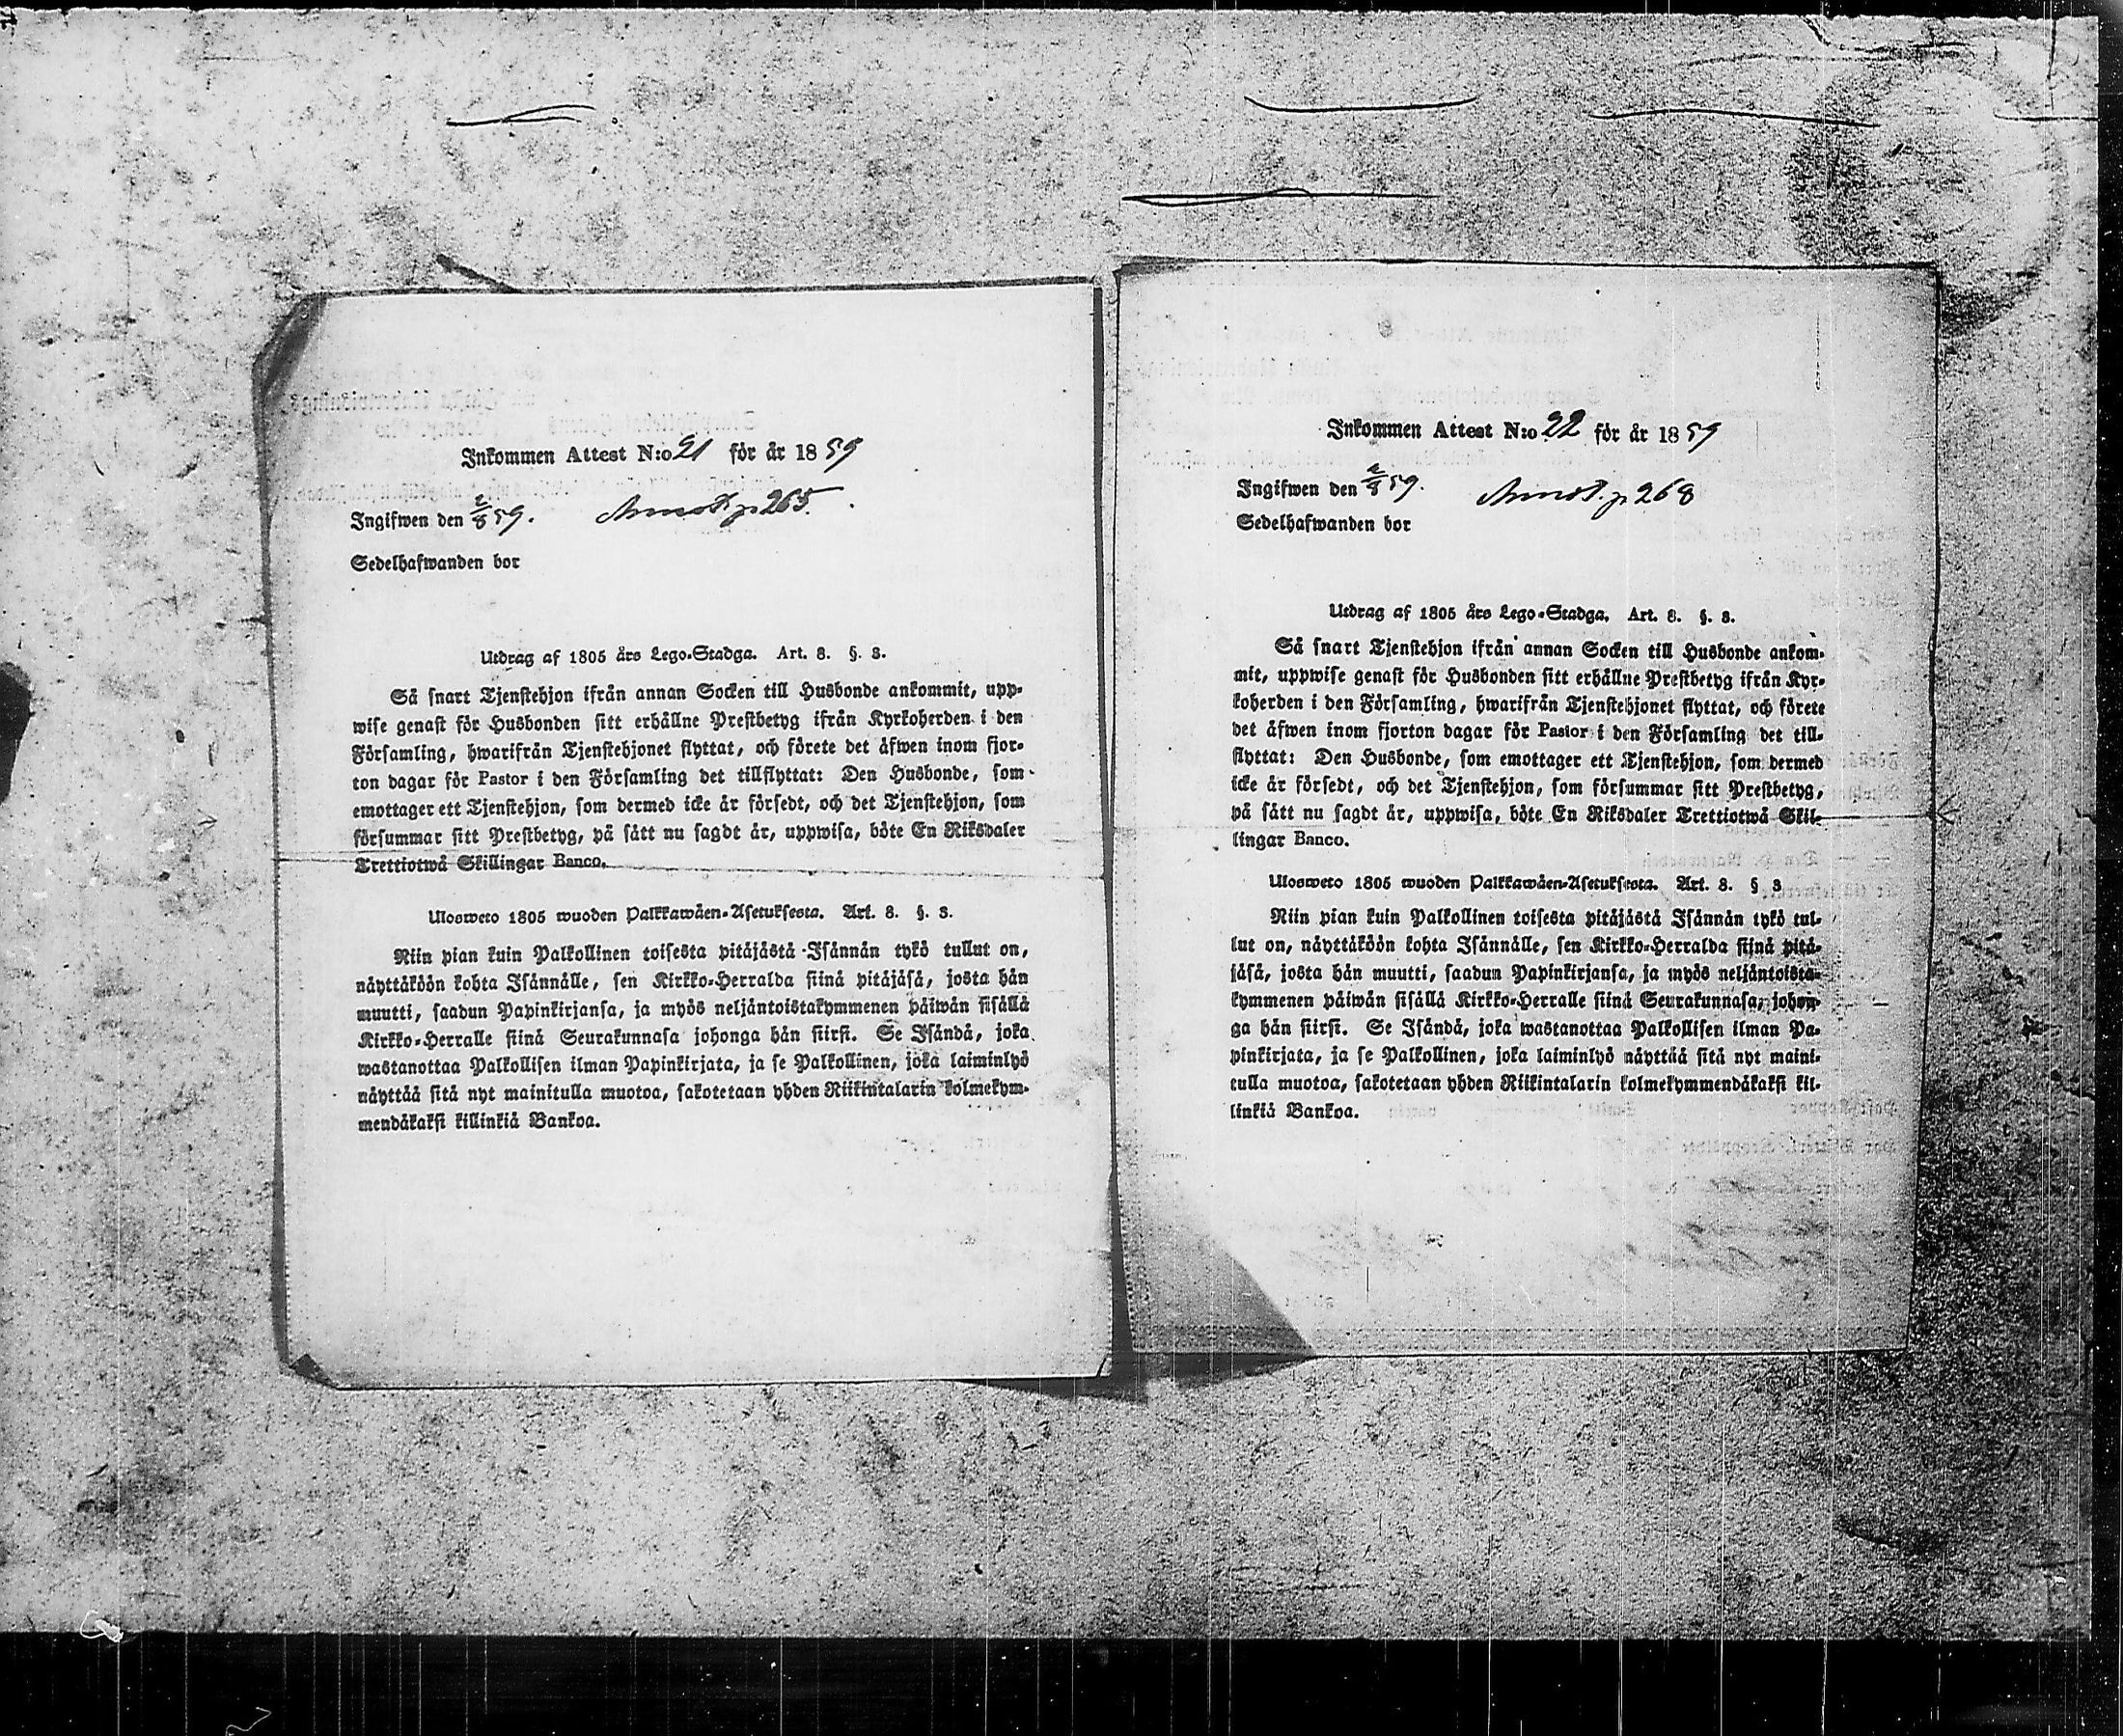 Inkommen Attest N:o 21 för år 1859
Ingifwen den 2/8 59. Annot. p 265.
Sedelhafwanden bor
Utdrag af 1805 års Lego-Stadga. Art. 8. §. 3.
Så snart Tjenstehjon ifrån annan Socken till Husbonde ankommit, upp-
wise genast för Husbonden sitt erhållne Prestbetyg ifrån Kyrkoherden i den
Församling, hwarifrån Tjenstehjonet flyttat, och förete det äfwen inom fjor-
ton dagar för Pastor i den Församling det tillflyttat: Den Husbonde, som
emottager ett Tjenstehjon, som dermed icke är försedt, och det Tjenstehjon, som
försummar sitt Prestbetyg, på sätt nu sagdt är, uppwisa, böte En Riksdaler
Trettiotwå Skillingar Banco.
Ulosweto 1805 wuoden Palkkawäen-Asetuksesta. Art. 8. §. 3.
Niin pian kuin Palkollinen toisesta pitäjästä Isännän tykö tullut on,
näyttäköön kohta Isännälle, sen Kirkko-Herralda siinä pitäjäsä, josta hän
muutti, saadun Papinkirjansa, ja myös neljäntoistakymmenen päiwän sisällä
Kirkko-Herralle siinä Seurakunnasa johonga hän siirsi. Se Isändä, joka
wastanottaa Palkollisen ilman Papinkirjata, ja se Palkollinen, joka laiminlyö
näyttää sitä nyt mainitulla muotoa, sakotetaan yhden Riikintalarin kolmekym-
mendäkaksi killinkiä Bankoa.
Inkommen Attest N:o 22 för år 1859
Ingifwen den 2/8 59. Annot. p 268
Sedelhafwanden bor
Utdrag af 1805 års Lego-Stadga. Art. 8. §. 3.
Så snart Tjenstehjon ifrån annan Socken till Husbonde ankom-
mit, uppwise genast för Husbonden sitt erhållne Prestbetyg ifrån Kyr-
koherden i den Församling, hwarifrån Tjenstehjonet flyttat, och förete
det äfwen inom fjorton dagar för Pastor i den Församling det till-
flyttat: Den Husbonde, som emottager ett Tjenstehjon, som dermed
icke är försedt, och det Tjenstehjon, som försummar sitt Prestbetyg,
på sätt nu sagdt är, uppwisa, böte En Riksdaler Trettiotwå Skil-
lingar Banco.
Ulosweto 1805 wuoden Palkkawäen-Asetuksesta. Art. 8. § 3
Niin pian kuin Palkollinen toisesta pitäjästä Isännän tykö tul-
lut on, näyttäköön kohta Isännälle, sen Kirkko-Herralda siinä pitä-
jäsä, josta hän muutti, saadun Papinkirjansa, ja myös neljäntoista-
kymmenen päiwän sisällä Kirkko-Herralle siinä Seurakunnasa, johon-
ga hän siirsi. Se Isändä, joka wastanottaa Palkollisen ilman Pa-
pinkirjata, ja se Palkollinen, joka laiminlyö näyttää sitä nyt maini-
tulla muotoa, sakotetaan yhden Riikintalarin kolmekymmendäkaksi kil-
linkiä Bankoa.